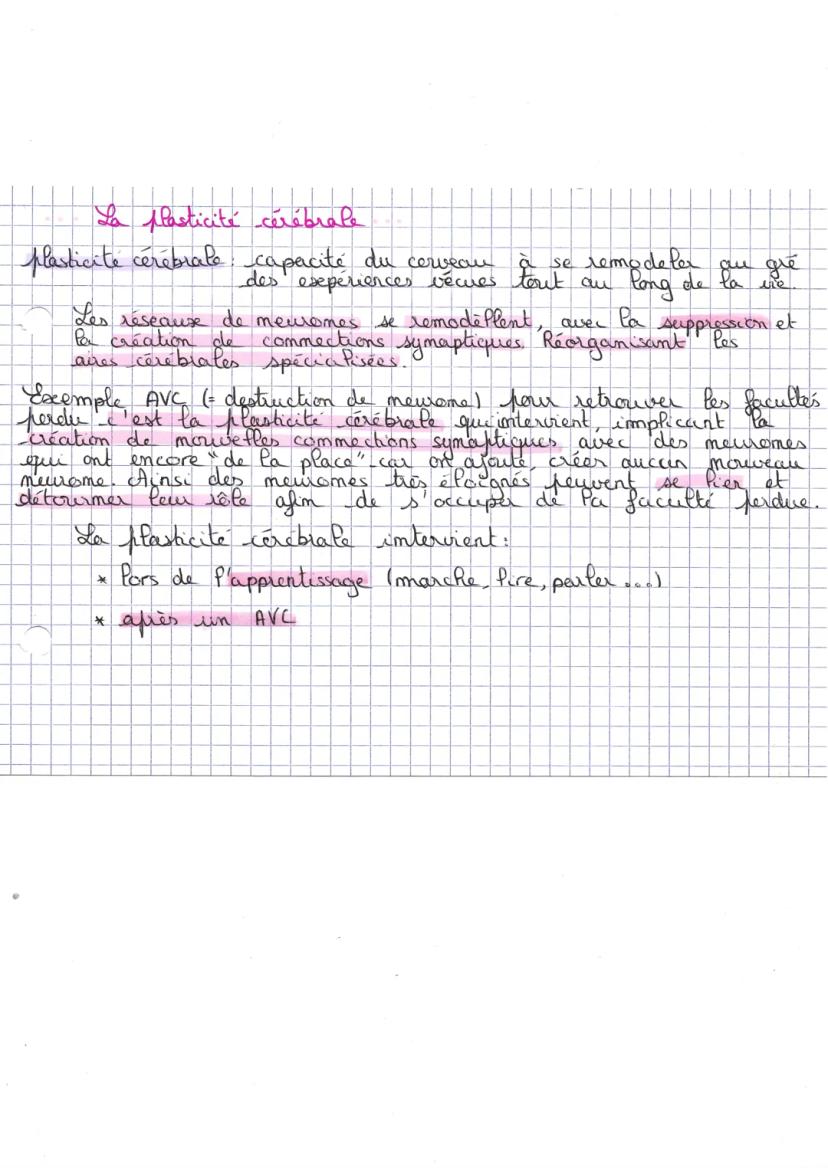 La plasticité cérébrale
plasticité cérébrale : capacité du cerveau à se remodeler au gré
des expériences vécues tout au long de la vie.
Les réseaux de neurones se remodèllent, avec la suppression et
la création de connections synaptiques. Réorganisant les
aires cérébrales spécialisées.
Exemple AVC (= destruction de neurone) pour retrouver les facultés
perdu c'est la plasticité cérébrale qui intervient, implicant la
création de nouvelles connections synaptiques avec des neurones
qui ont encore "de la place" car on ajoute, créer aucun nouveau
neurone. Ainsi des neurones très éloignés peuvent se lier et
détourner leur rôle afin de s'occuper de la faculté perdue.
La plasticité cérébrale intervient :
* lors de l'apprentissage (marche, lire, parler ...)
* après un AVC